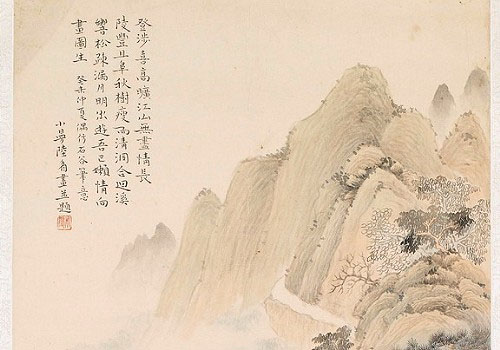 登涉喜高曠江山無盡情長
陵豐且阜秋樹瘦而清洞合迴溪
響松疎漏月明出遊吾已嬾情向
畫圖生 癸未仲夏偶仿石谷筆意
小陸畫並題